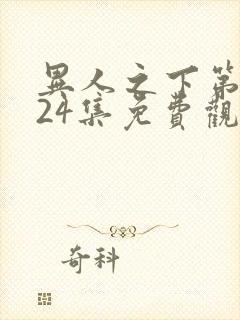 異人之下第
24集免費觀
奇科